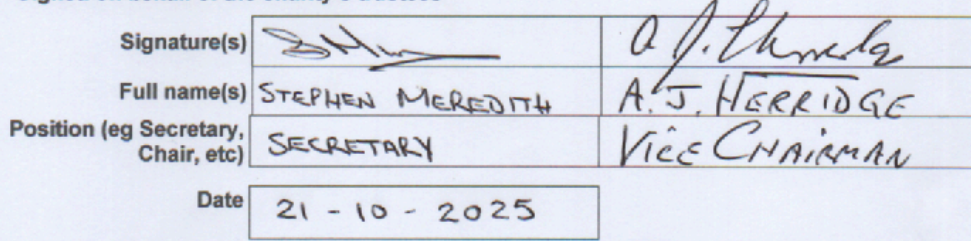 Signature(s)
Full name(s) STEPHEN MEREDITH A. J. HERRIDGE
Position (eg Secretary, SECRETARY VICE CHAIRMAN
Chair, etc)
Date 21 - 10 - 2025